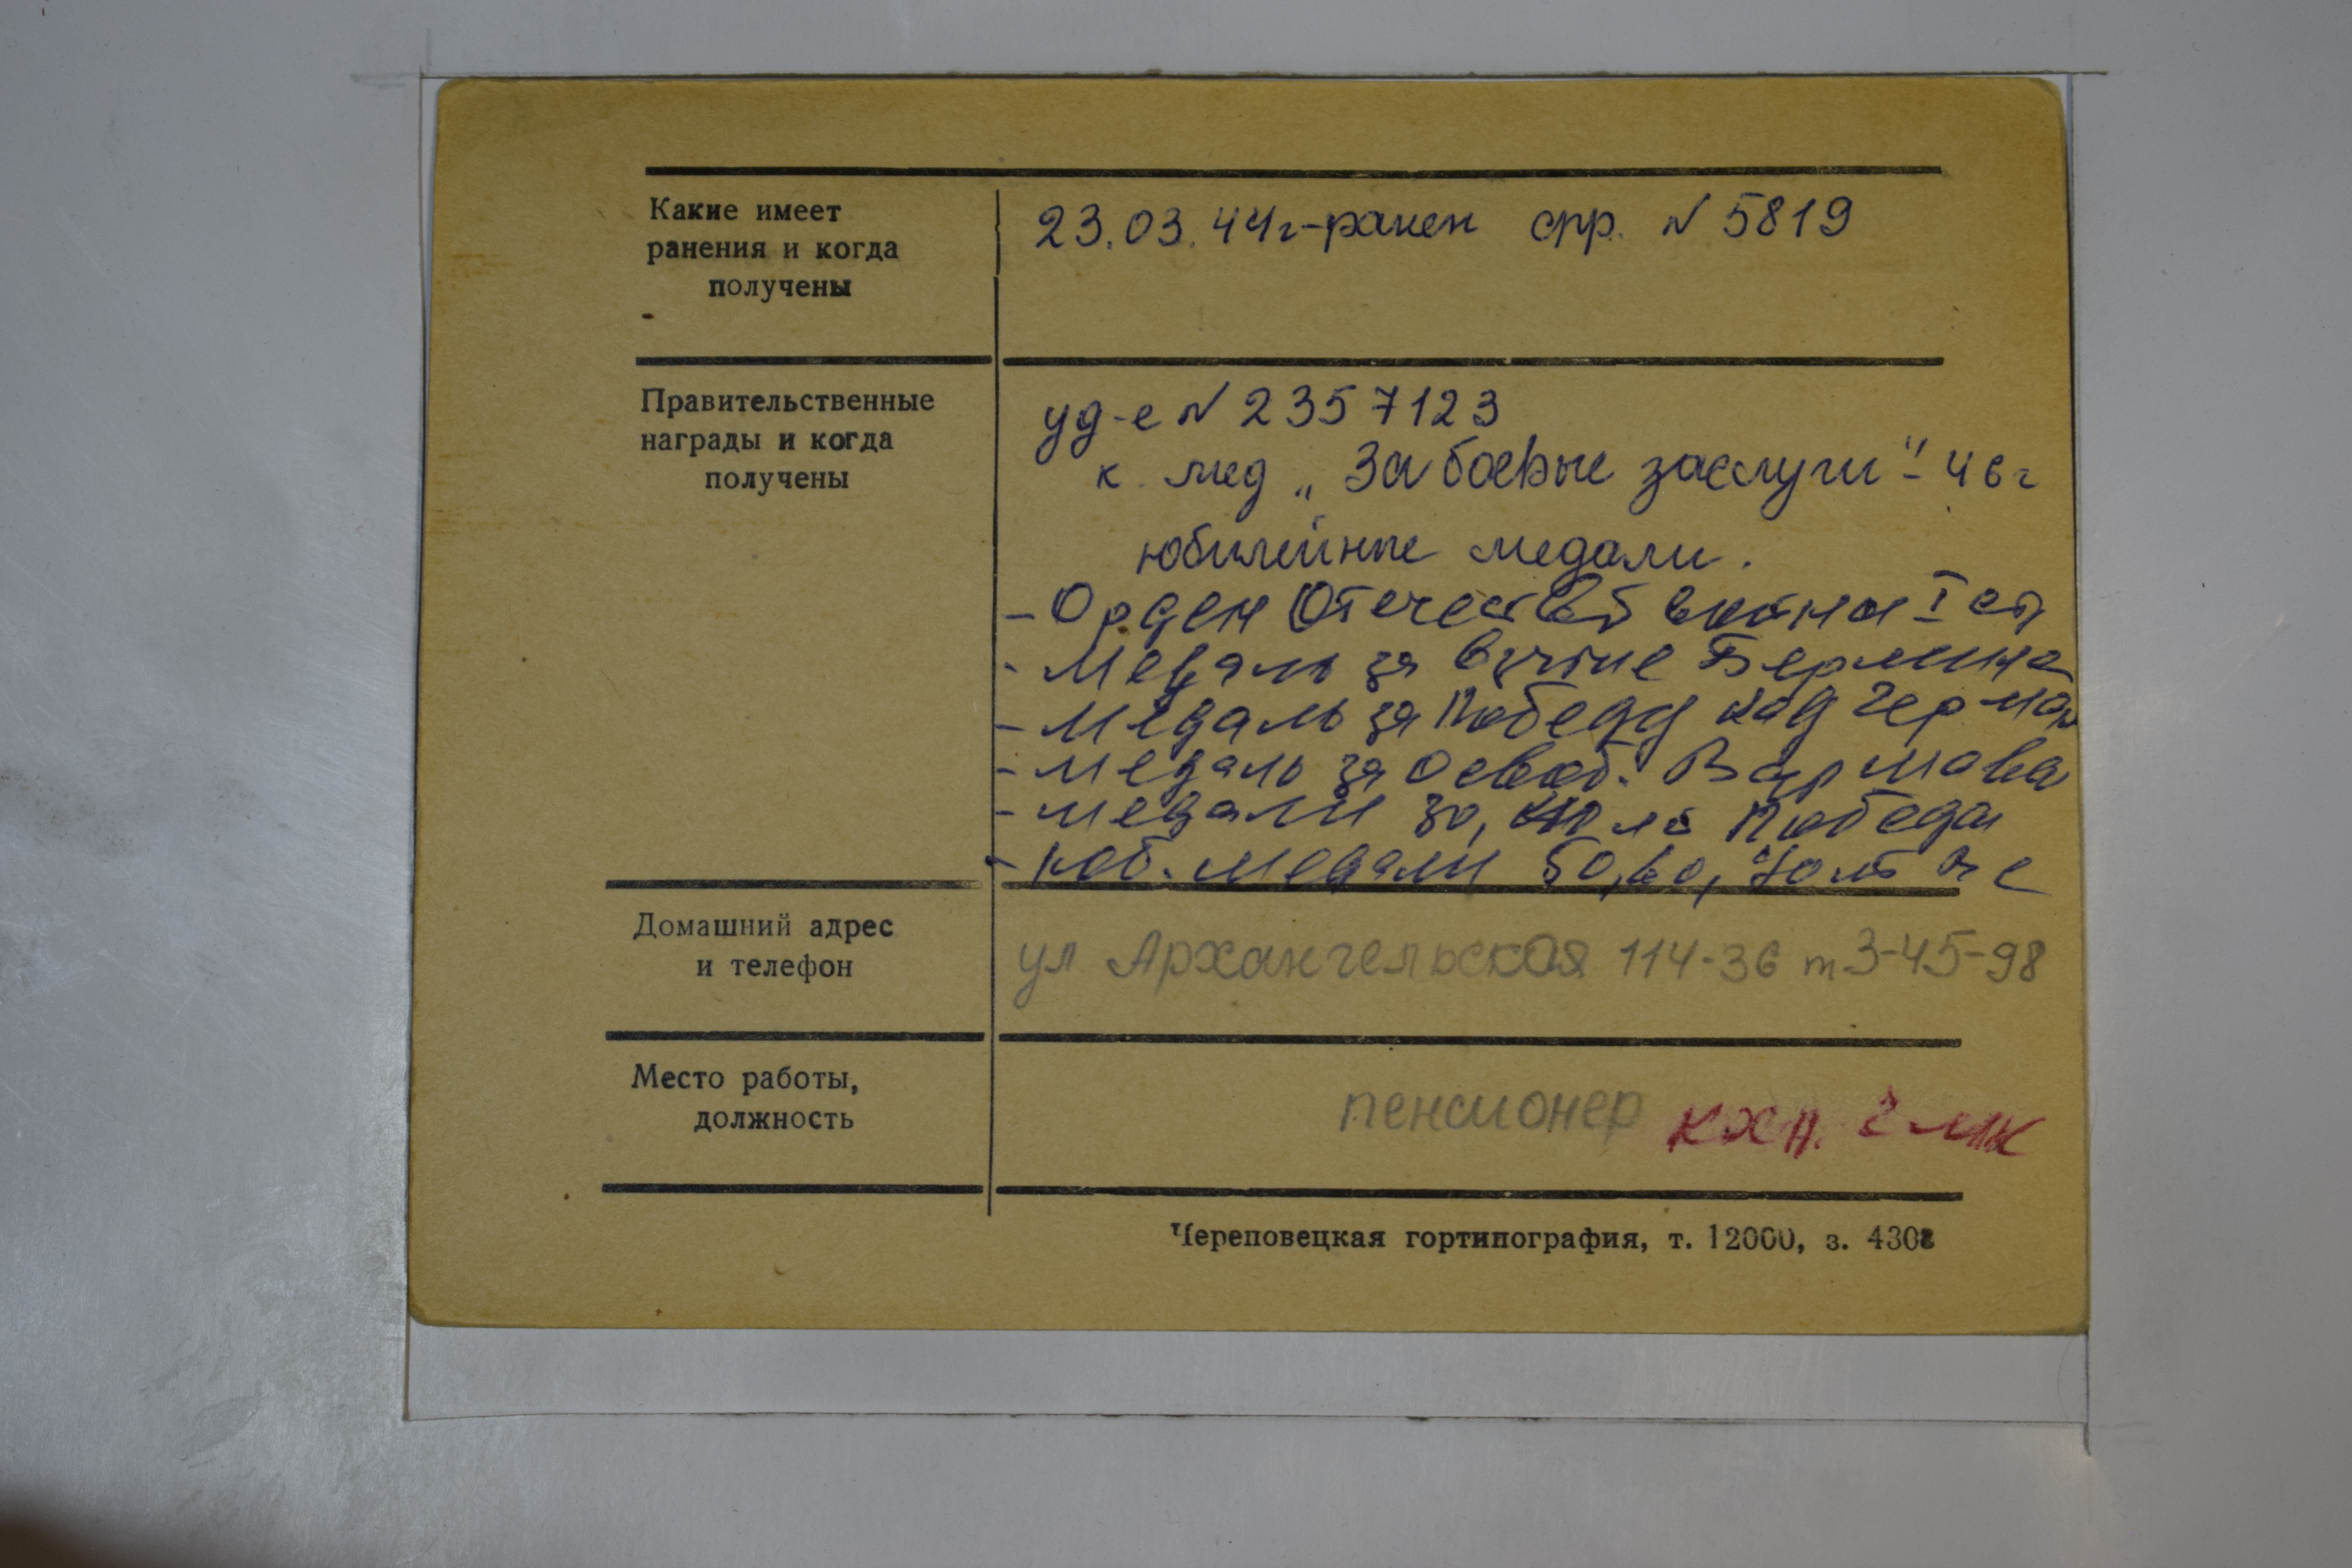 Какие имеет
ранения и когда
получены
23.03.44г-ранен спр. N 5819
Правительственные
награды и когда
получены
уд-е N 2357123
к мед „За боевые заслуги" - 46г
юбилейные медали.
- Орден Отечеств войны I ст
- Медаль за взятие Берлина
- Медаль за Победу над Герман
- Медаль за освоб. Варшавы
- медали 30, 40 ле Победы
- юб. медали 50, 60, 70 лет
Домашний адрес
и телефон
ул Архангельская 114-36 т 3-45-98
Место работы,
должность
пенсионер КХП. ЧМК
Череповецкая гортипография, т. 12000, з. 4308